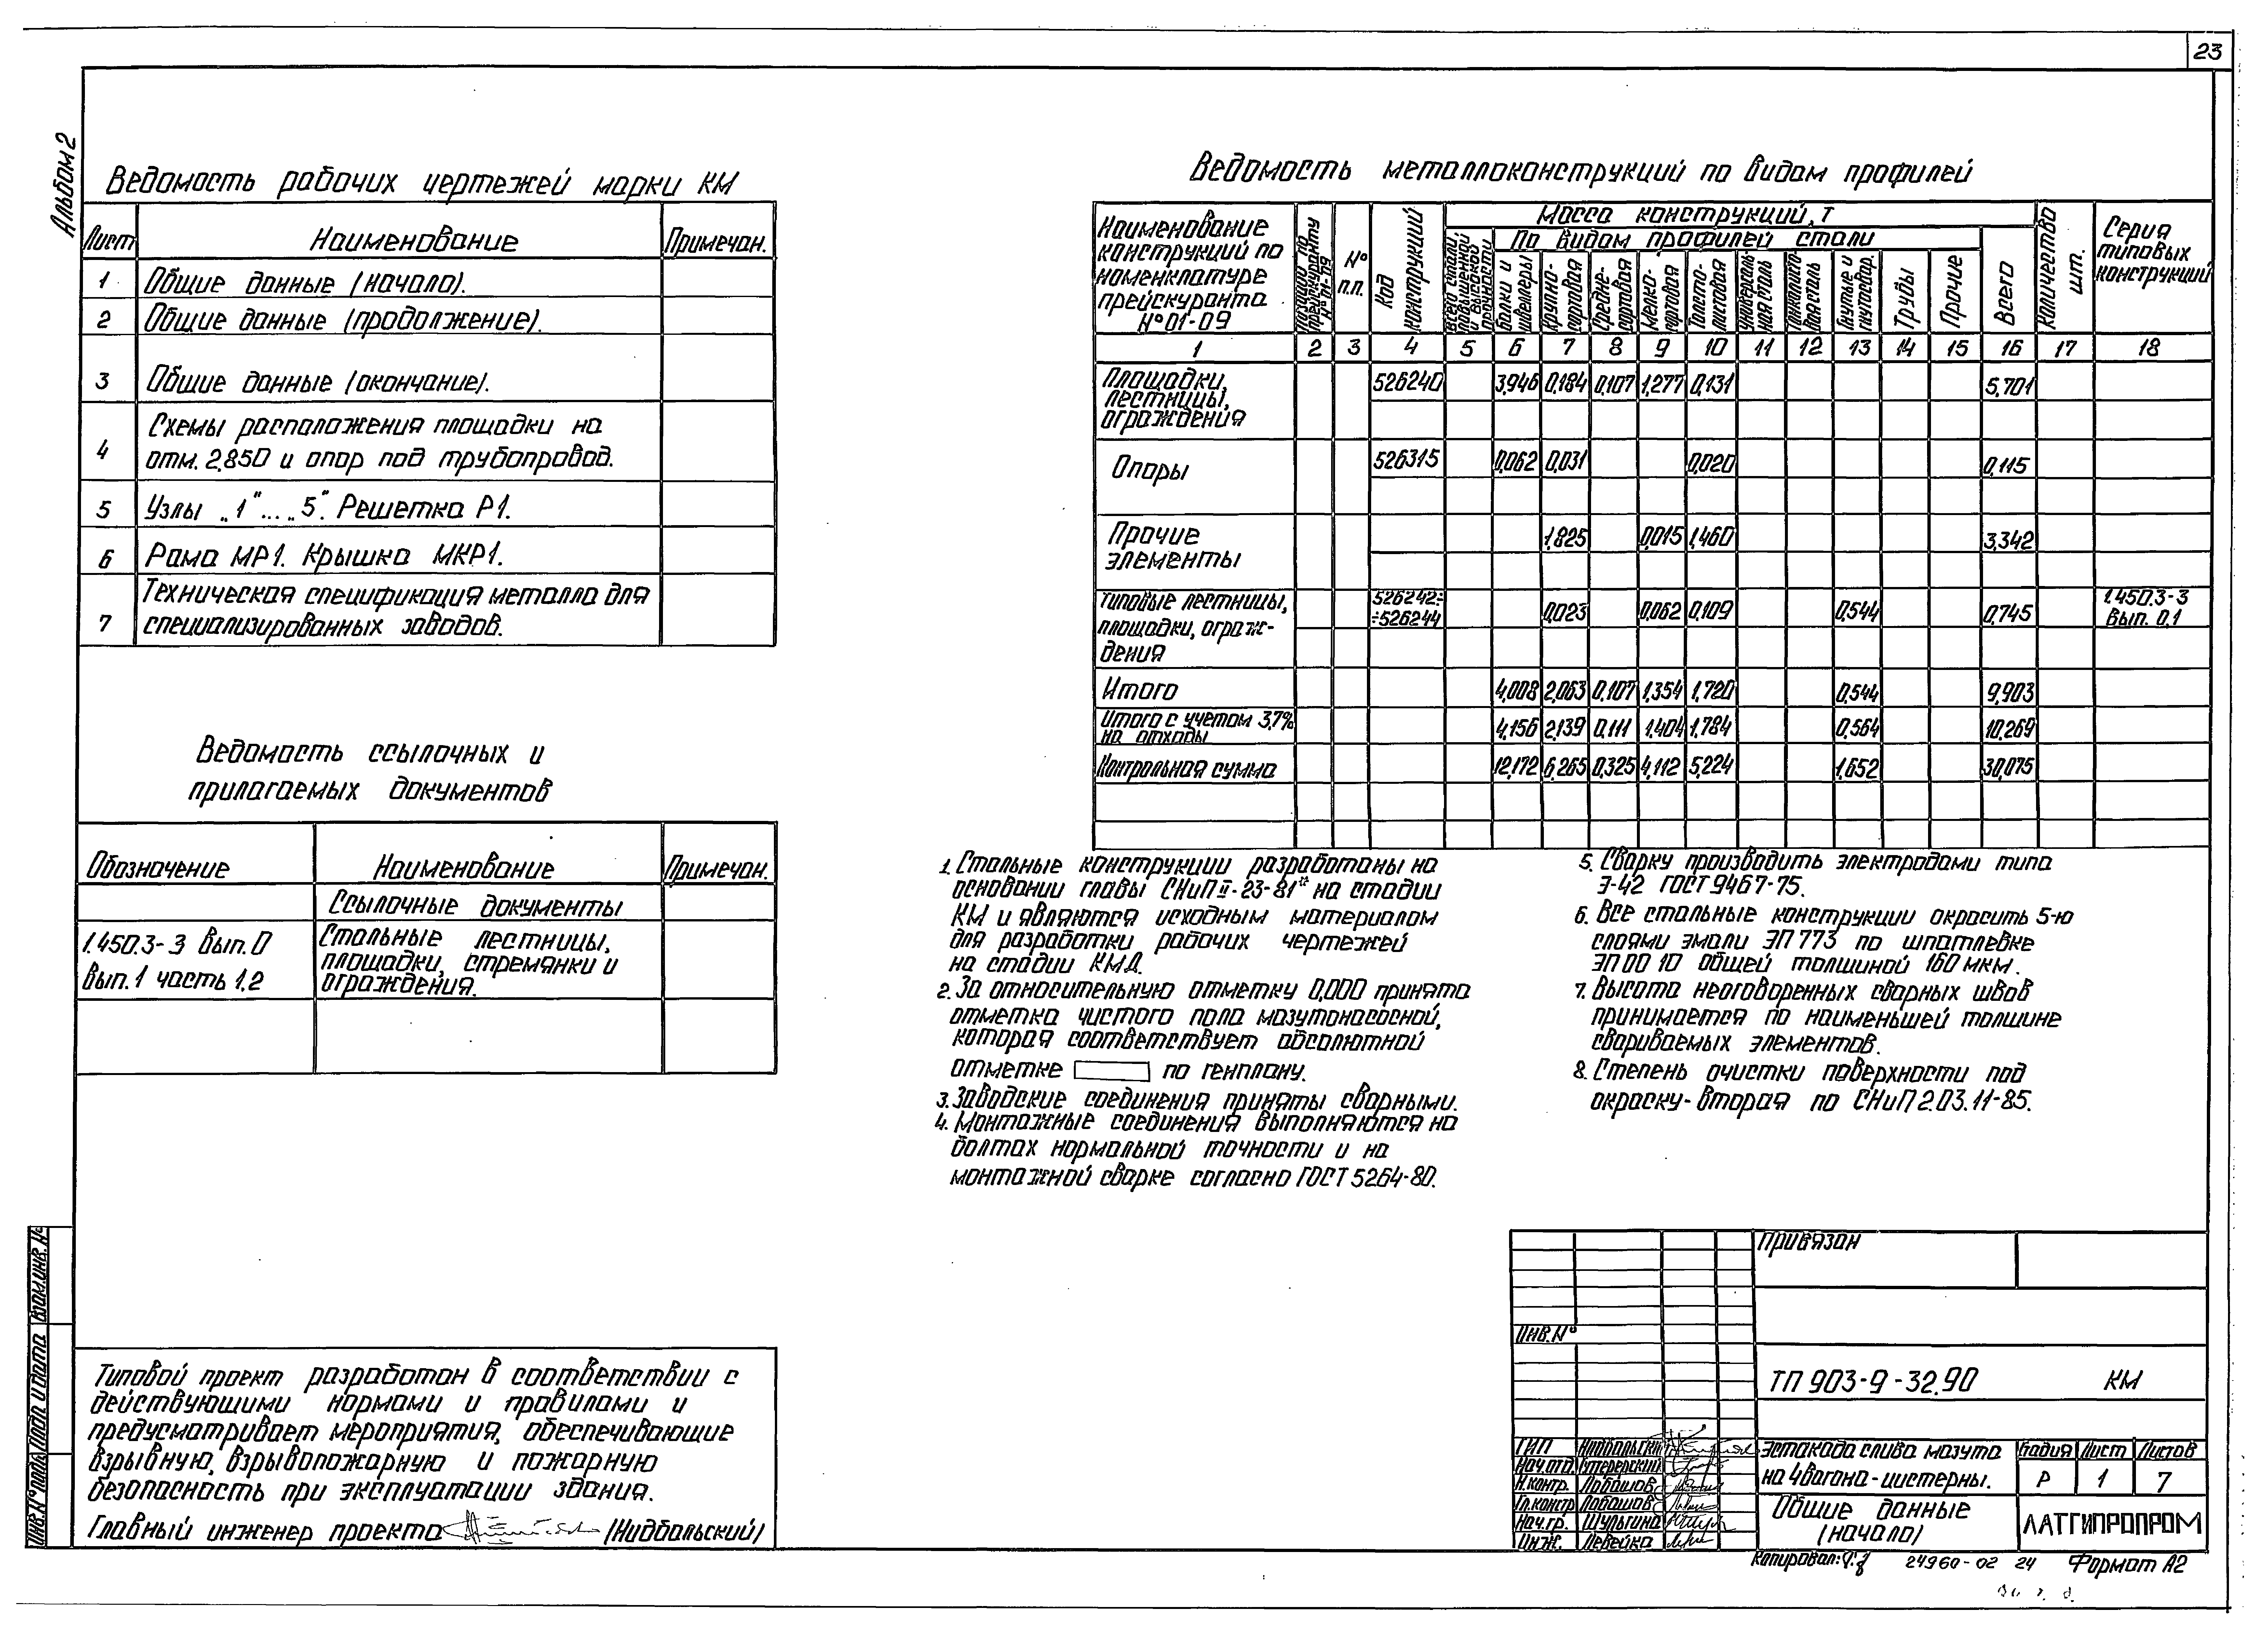 23
Альбом 2
Ведомость рабочих чертежей марки КМ
Лист Наименование Примечан.
1 Общие данные (начало).
2 Общие данные (продолжение).
3 Общие данные (окончание).
4 Схемы расположения площадки на
отм. 2,850 и опор под трубопровод.
5 Узлы „1"...„5". Решетка Р1.
6 Рама МР1. Крышка МКР1.
7 Техническая спецификация металла для
специализированных заводов.
Ведомость ссылочных и
прилагаемых документов
Обозначение Наименование Примечан.
Ссылочные документы
1.450.3-3 Вып.0 Стальные лестницы,
Вып.1 часть 1.2 площадки, стремянки и
ограждения.
Типовой проект разработан в соответствии с
действующими нормами и правилами и
предусматривает мероприятия, обеспечивающие
взрывную, взрывопожарную и пожарную
безопасность при эксплуатации здания.
Главный инженер проекта (Нидбальский)
Ведомость металлоконструкций по видам профилей
Наименование
конструкций по
номенклатуре
прейскуранта
№01-09
№ п.п.
Код конструкций
Масса конструкций, т
По видам профилей стали
Всего стали повышенной и высокой прочности
Балки и швеллеры
Крупно-сортовая
Средне-сортовая
Мелко-сортовая
Толсто-листовая
Универсаль-ная сталь
Гнутые и гнутосвар.
Трубы
Прочие
Всего
Количество шт.
Серия
типовых
конструкций
1 2 3 4 5 6 7 8 9 10 11 12 13 14 15 16 17 18
Площадки,
лестницы,
ограждения 526240 3,946 0,184 0,107 1,277 0,131 5,701
Опоры 526315 0,062 0,031 0,020 0,115
Прочие
элементы 1,825 0,015 1,460 3,342
Типовые лестницы,
площадки, ограж-
дения 526242÷
÷526244 0,023 0,062 0,109 0,544 0,745 1.450.3-3
Вып. 0.1
Итого 4,008 2,063 0,107 1,354 1,720 0,544 9,903
Итого с учетом 3,7%
на отходы 4,156 2,139 0,111 1,404 1,784 0,564 10,269
Контрольная сумма 12,172 6,265 0,325 4,112 5,224 1,652 30,075
1. Стальные конструкции разработаны на
основании главы СНиП II-23-81* на стадии
КМ и являются исходным материалом
для разработки рабочих чертежей
на стадии КМД.
2. За относительную отметку 0,000 принята
отметка чистого пола мазутонасосной,
которая соответствует абсолютной
отметке по генплану.
3. Заводские соединения приняты сварными.
4. Монтажные соединения выполняются на
болтах нормальной точности и на
монтажной сварке согласно ГОСТ 5264-80.
5. Сварку производить электродами типа
Э-42 ГОСТ 9467-75.
6. Все стальные конструкции окрасить 5-ю
слоями эмали ЭП 773 по шпатлевке
ЭП 00 10 общей толшиной 160 мкм.
7. Высота неоговоренных сварных швов
принимается по наименьшей толшине
свариваемых элементов.
8. Степень очистки поверхности под
окраску-вторая по СНиП 2.03.11-85.
Привязан
Инв.№
ТП 903-9-32.90 КМ
ГИП Нидбальский
Нач.отд.
Н.контр. Лобашов
Гл.констр Лобашов
Нач.гр. Шульгина
Инж. Левейка
Эстакада слива мазута
на 4 вагона-цистерны.
Стадия Лист Листов
Р 1 7
Общие данные
(начало)
ЛАТГИПРОПРОМ
Копировал:
24960-02 24
Формат А2
Инв.№ подл. Подп. и дата Взам.инв.№